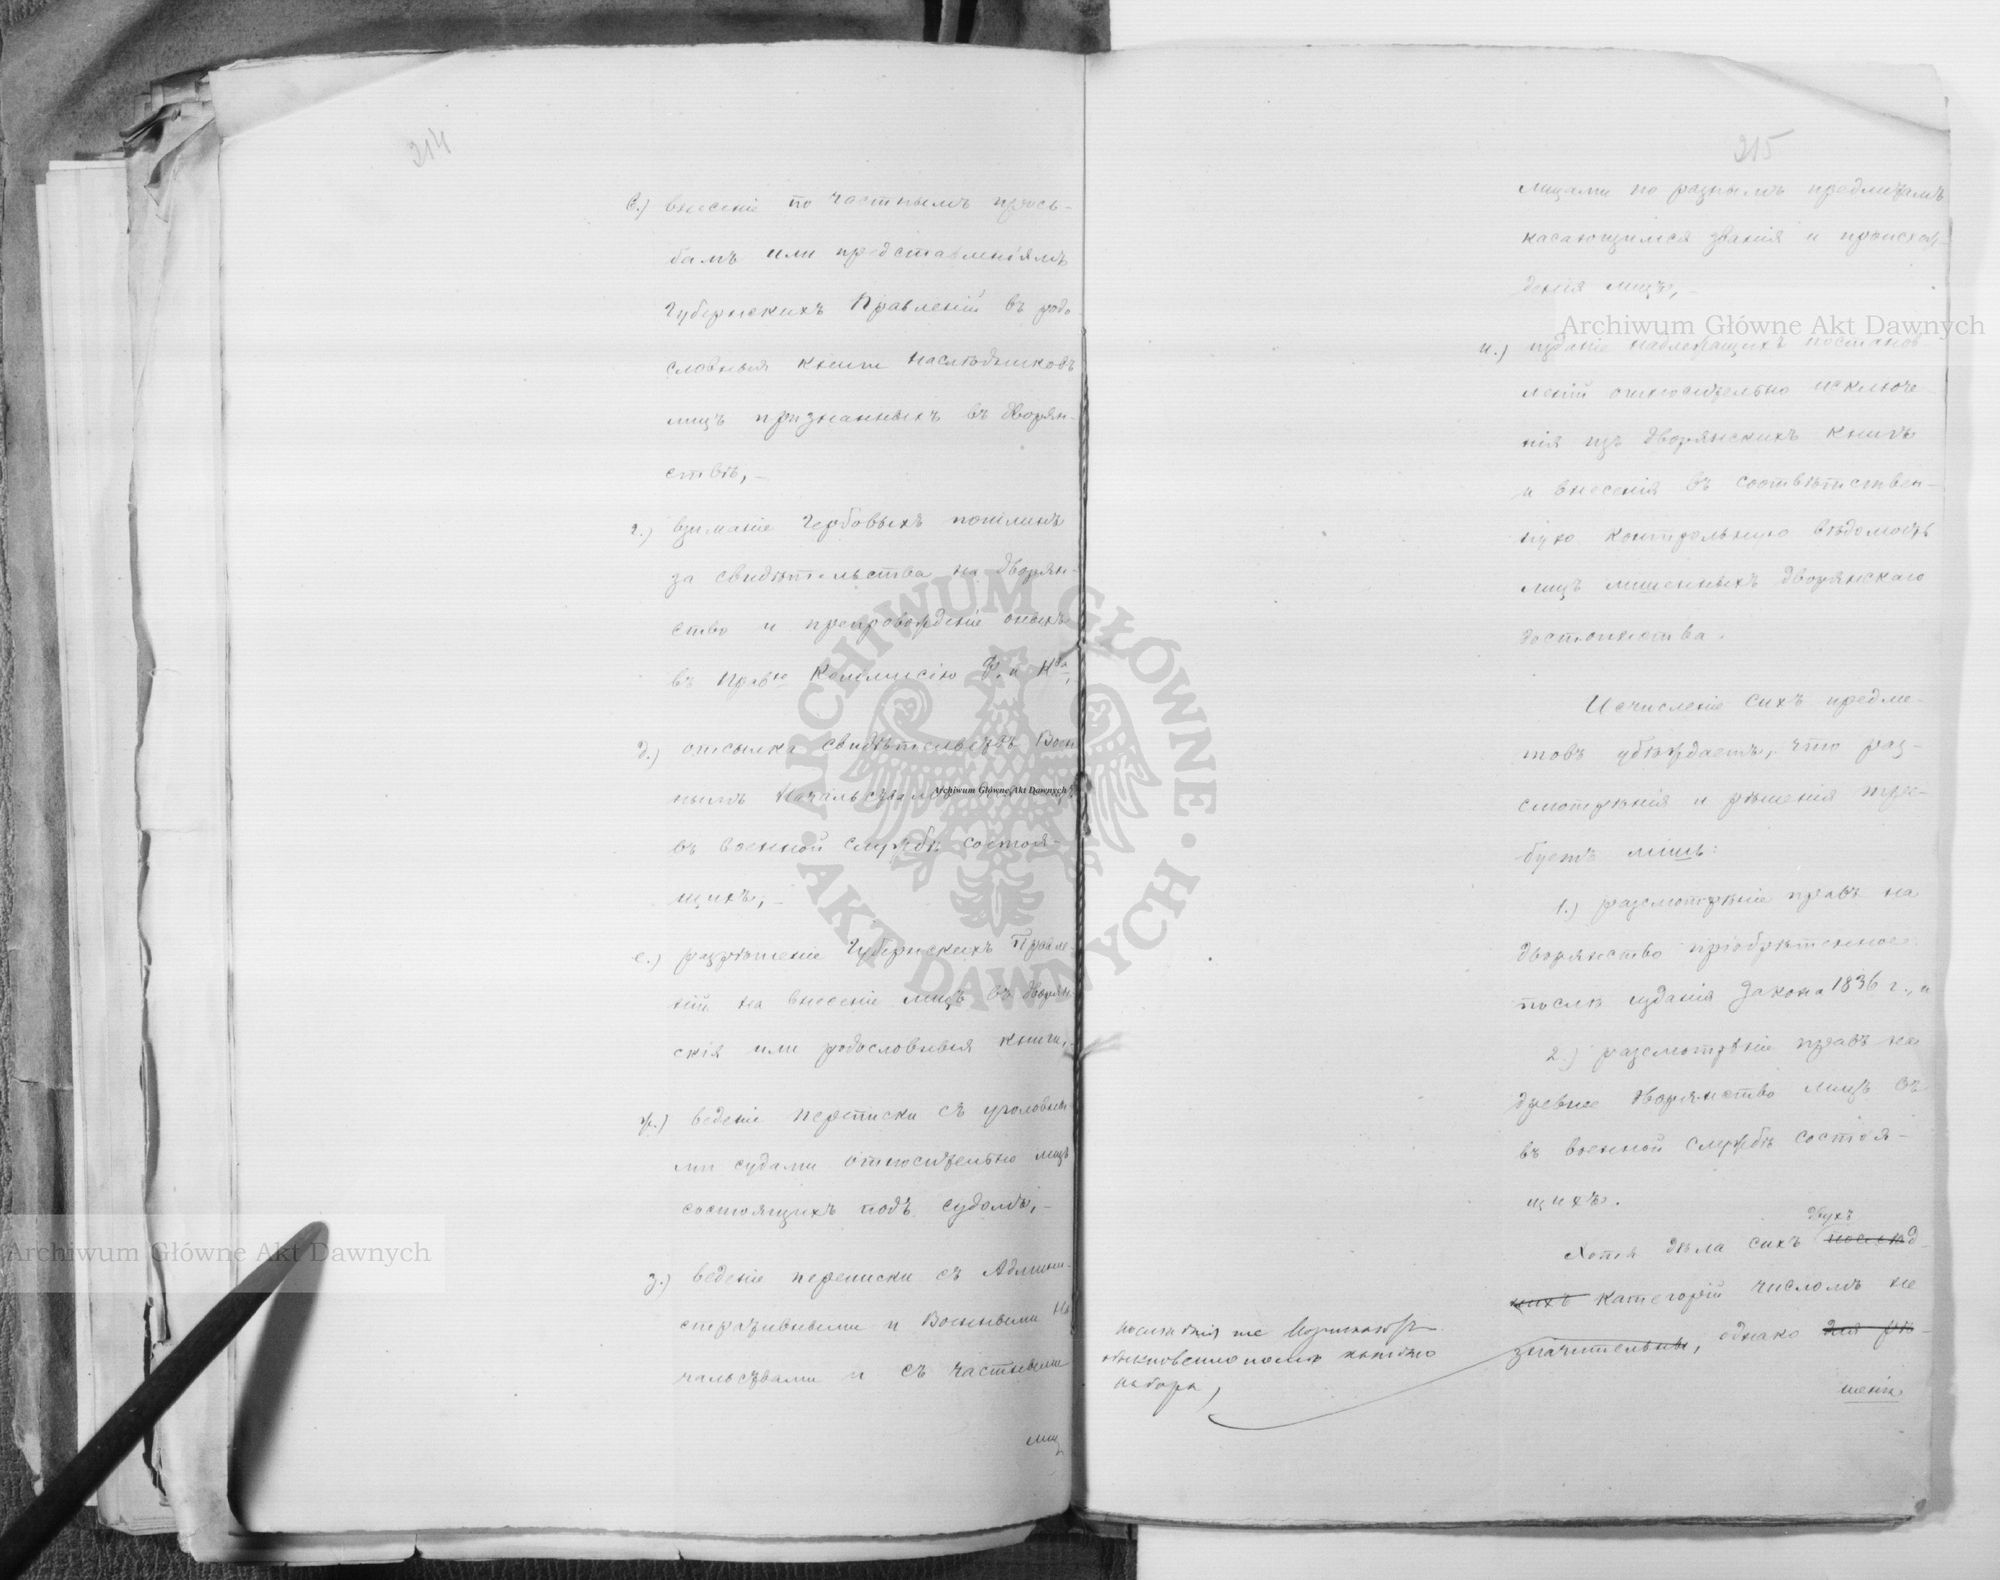 214
в.) внесеніе по частнымъ прось-
бамъ или представленіямъ
Губернскихъ Правленій въ родо
словныя книги наслѣдниковъ
лицъ признанныхъ въ дворян-
ствѣ,-
г.) взиманіе гербовыхъ пошлинъ
за свидѣтельства на дворян-
ство и препровожденіе оныхъ
въ Прав<sup>ю</sup> Коммисію Ф. и К<sup>ва</sup>,
д.) отсылка свидѣтельствъ Воен
нымъ Начальствамъ
въ военной службѣ состоя-
щихъ,-
е.) разрѣшеніе Губернскихъ Правле-
ній на внесеніе лицъ въ дворян
скія или родословныя книги,-
ж.) веденіе переписки съ уголовны-
ми судами относительно лицъ
состоящихъ подъ судомъ,-
з.) веденіе переписки съ Админи-
стративными и Военными На
чальствами и съ частными
лиц
215
лицами по разнымъ предметамъ
касающимся званія и происхож-
денія лицъ,-
и.) изданіе надлежащихъ постанов-
леній относительно исключе-
нія изъ дворянскихъ книгъ
и внесенія въ соотвѣтствен-
ную контрольную вѣдомость
лицъ лишенныхъ дворянскаго
достоинства.
Исчисленіе сихъ предме-
товъ убѣждаетъ, что раз-
смотрѣнія и рѣшенія тре-
буетъ лишь:
1.) разсмотрѣніе правъ на
дворянство пріобрѣтенное
послѣ изданія Закона 1836 г., и
2.) разсмотрѣніе правъ на
древнее дворянство лицъ въ
въ военной службѣ состоя-
щихъ.
двухъ
Хотя дѣла сихъ послѣд-
нихъ категорій числомъ не
значительны, однако для рѣ-
шенія
Archiwum Główne Akt Dawnych
Archiwum Główne Akt Dawnych
Archiwum Główne Akt Dawnych
ARCHIWUM GŁÓWNE AKT DAWNYCH